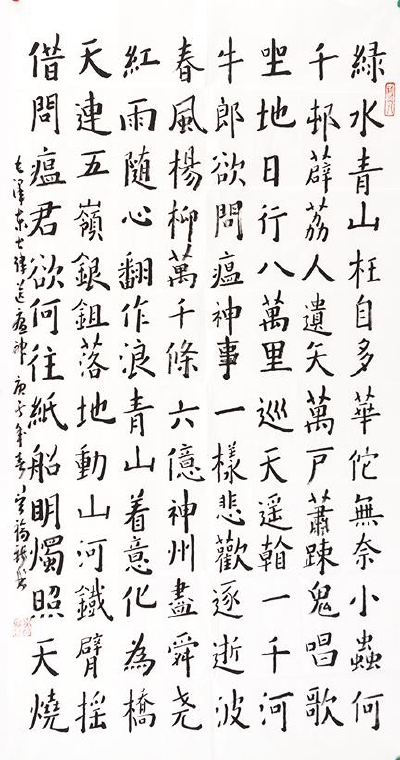 綠水青山枉自多華佗無奈小蟲何
千邨薜荔人遺矢萬戸蕭踈鬼唱歌
坐地日行八萬里巡天遥翰一千河
牛郎欲問瘟神事一樣悲歡逐逝波
春風楊柳萬千條六億神州盡舜尧
紅雨随心翻作浪青山着意化為橋
天連五嶺銀鉏落地動山河鐵臂摇
借問瘟君欲何往紙船明燭照天燒
毛澤東七律送瘟神庚子年春